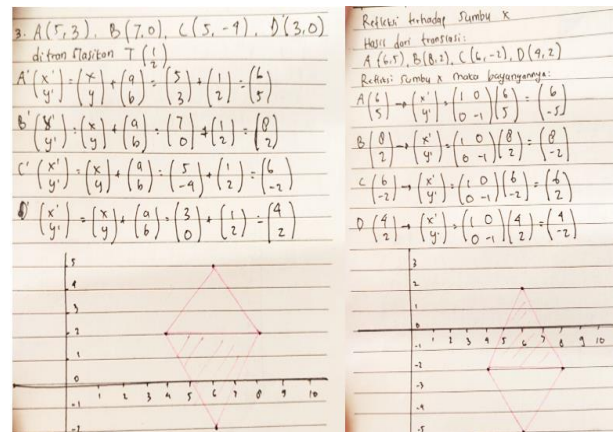 3. A(5,3), B(7,0), C(5,-4), D(3,0)
ditranslasikan T (1 2)
A' (x' y') = (x y) + (a b) = (5 3) + (1 2) = (6 5)
B' (x' y') = (x y) + (a b) = (7 0) + (1 2) = (8 2)
C' (x' y') = (x y) + (a b) = (5 -4) + (1 2) = (6 -2)
D' (x' y') = (x y) + (a b) = (3 0) + (1 2) = (4 2)
5
4
3
2
1
0
1 2 3 4 5 6 7 8 9 10
-1
-2
Refleksi terhadap sumbu x
Hasil dari translasi:
A(6,5), B(8,2), C(6,-2), D(4,2)
Refleksi sumbu x maka bayangannya:
A (6 5) → (x' y') = (1 0 0 -1) (6 5) = (6 -5)
B (8 2) → (x' y') = (1 0 0 -1) (8 2) = (8 -2)
C (6 -2) → (x' y') = (1 0 0 -1) (6 -2) = (6 2)
D (4 2) → (x' y') = (1 0 0 -1) (4 2) = (4 -2)
3
2
1
0
1 2 3 4 5 6 7 8 9 10
-1
-2
-3
-4
-5